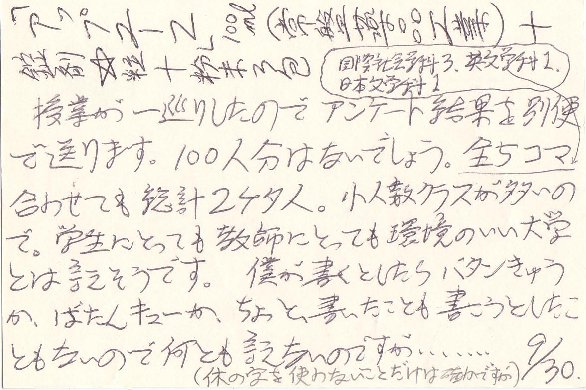 「アップZ-Z」100ml(常盤堂製薬)+
錠剤四粒+粉末3包
国際社会学科3、英文学科1、
日本文学科1
授業が一巡りしたのでアンケート結果を別便
で送ります。100人分はないでしょう。全5コマ
合わせても総計2ケタ人。小人数クラスが多いの
で。学生にとっても教師にとっても環境のいい大学
とは言えそうです。 僕が書くとしたらバタンきゅう
か、ばたんキューか、ちょっと、書いたことも書こうとしたこ
ともないので何とも言えないのですが........
(休の字を使わないことだけは確かですが) 9/30.